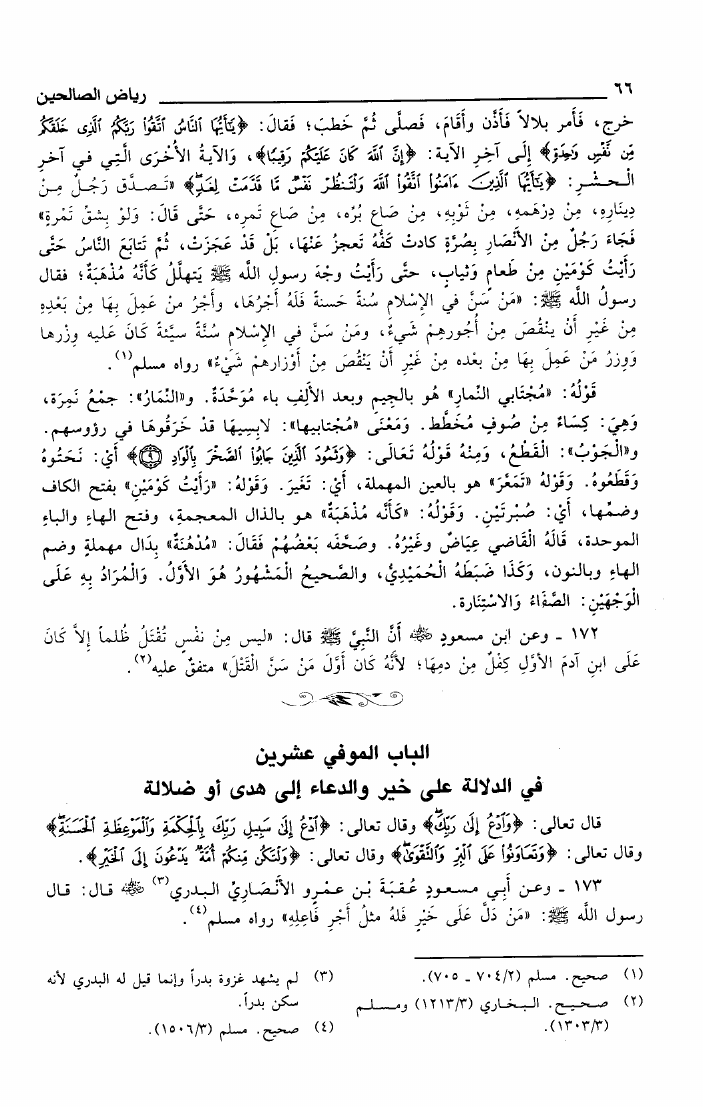 ٦٦ رياض الصالحين
خرج، فأمر بلالاً فأذَّن وأقَامَ، فَصلَّى ثُمَّ خَطبَ؛ فَقالَ: ﴿يَٰٓأَيُّهَا ٱلنَّاسُ ٱتَّقُوا۟ رَبَّكُمُ ٱلَّذِى خَلَقَكُم
مِّن نَّفْسٍ وَٰحِدَةٍ﴾ إِلَى آخِرِ الآية: ﴿إِنَّ ٱللَّهَ كَانَ عَلَيْكُمْ رَقِيبًا﴾، وَالآيةُ الأُخْرَى الَّتِي في آخرِ
الْـحـشْـرِ: ﴿يَٰٓأَيُّهَا ٱلَّذِينَ ءَامَنُوا۟ ٱتَّقُوا۟ ٱللَّهَ وَلْتَنظُرْ نَفْسٌ مَّا قَدَّمَتْ لِغَدٍ﴾ «تَـصـدَّق رَجُـلٌ مِـنْ
دِينَارِه، مِنْ دِرْهَمِهِ، مِنْ ثَوْبِهِ، مِن صَاعِ بُرِّه، مِنْ صَاعِ تَمرِه، حَتَّى قَالَ: وَلوْ بِشقِّ تَمْرةٍ»
فَجَاءَ رَجُلٌ مِنَ الأَنْصَارِ بِصُرَّةٍ كادتْ كَفُّهُ تَعجزُ عَنْهَا، بَلْ قَدْ عَجزَتْ، ثُمَّ تَتابَعَ النَّاسُ حَتَّى
رَأَيْتُ كَوْمَيْنِ مِنْ طَعامٍ وَثيابٍ، حتَّى رَأَيْتُ وجْهَ رسولِ الله ﷺ يَتهلَّلُ كَأَنَّهُ مُذْهَبَةٌ؛ فقال
رسولُ الله ﷺ: «مَنْ سَنَّ في الإِسْلامِ سُنةً حَسنةً فَلَهُ أَجْرُهَا، وأَجْرُ من عَمِلَ بِهَا مِنْ بَعْدِهِ
مِنْ غَيْرِ أَن يَنْقُصَ مِنْ أُجُورِهِمْ شَيءٌ، ومَنْ سَنَّ في الإِسْلامِ سُنَّةً سيِّئةً كَانَ عَليه وِزْرها
وَوِزرُ مَنْ عَمِلَ بِهَا مِنْ بعْده مِنْ غَيْرِ أَن يَنْقُصَ مِنْ أَوْزَارهمْ شَيْءٌ» رواه مسلم(١).
قَوْلُهُ: «مُجْتَابي النِّمارِ» هُو بالجِيمِ وبعد الأَلِفِ باء مُوَحَّدَةٌ. و«النِّمَارُ»: جمْعُ نَمِرَة،
وَهِيَ: كِسَاءٌ مِنْ صُوفٍ مُخَطَّط. وَمَعْنَى «مُجْتابيها»: لابِسِيهَا قدْ خَرَقُوهَا في رؤوسهم.
و«الْجَوْبُ»: الْقَطْعُ، وَمِنْهُ قَوْلُهُ تَعَالَى: ﴿وَثَمُودَ ٱلَّذِينَ جَابُوا۟ ٱلصَّخْرَ بِٱلْوَادِ ٩﴾ أَي: نَحَتُوهُ
وَقَطَعُوهُ. وَقَوْلهُ «تَمَعَّرَ» هو بالعين المهملة، أَيْ: تَغَيرَ. وَقَوْلهُ: «رَأَيْتُ كَوْمَيْنِ» بفتح الكاف
وضمِّها، أَيْ: صُبْرتَيْنِ. وَقَوْلُهُ: «كَأَنَّه مُذْهَبَةٌ» هـو بالذال المعجمةِ، وفتح الهاءِ والباءِ
الموحدة، قَالَهُ الْقَاضي عِيَاضٌ وغَيْرُهُ. وصَحَّفَه بَعْضُهُمْ فَقَالَ: «مُدْهُنَةٌ» بِدَال مهملةٍ وضم
الهاءِ وبالنونِ، وَكَذَا ضَبَطَهُ الْحُمَيْدِيُّ، والصَّحيحُ الْمَشْهُورُ هُوَ الأَوَّلُ. وَالْمُرَادُ بِهِ عَلَى
الْوَجْهَيْنِ: الصَّفَاءُ وَالاسْتِنَارة.
١٧٢ ـ وعن ابن مسعودٍ رضي الله عنه أَنَّ النَّبيَّ ﷺ قال: «ليس مِنْ نفْسٍ تُقْتَلُ ظُلماً إِلاَّ كَانَ
عَلَى ابنِ آدمَ الأوَّلِ كِفْلٌ مِنْ دمِهَا؛ لأَنَّهُ كَان أَوَّل مَنْ سَنَّ الْقَتْلَ» متفقٌ عليه(٢).
الباب الموفي عشرين
في الدلالة على خير والدعاء إلى هدى أو ضلالة
قال تعالى: ﴿وَٱدْعُ إِلَىٰ رَبِّكَ﴾ وقال تعالى: ﴿ٱدْعُ إِلَىٰ سَبِيلِ رَبِّكَ بِٱلْحِكْمَةِ وَٱلْمَوْعِظَةِ ٱلْحَسَنَةِ﴾
وقال تعالى: ﴿وَتَعَاوَنُوا۟ عَلَى ٱلْبِرِّ وَٱلتَّقْوَىٰ﴾ وقال تعالى: ﴿وَلْتَكُن مِّنكُمْ أُمَّةٌ يَدْعُونَ إِلَى ٱلْخَيْرِ﴾.
١٧٣ ـ وعـن أَبـي مـسـعـودٍ عُـقـبَـةَ بْـن عـمْـرٍو الأَنْـصَـارِيِّ الـبـدري(٣) رضي الله عنه قـال: قـال
رسول الله ﷺ: «مَنْ دَلَّ عَلَى خَيْرٍ فَلهُ مثلُ أَجْرِ فَاعِلِهِ» رواه مسلم(٤).
(١) صحيح. مسلم (٢/ ٧٠٤ ـ ٧٠٥).
(٢) صـحـيـح. الـبـخـاري (٣/ ١٢١٣) ومـسـلـم
(٣/ ١٣٠٣).
(٣) لم يشهد غزوة بدراً وإنما قيل له البدري لأنه
سكن بدراً.
(٤) صحيح. مسلم (٣/ ١٥٠٦).